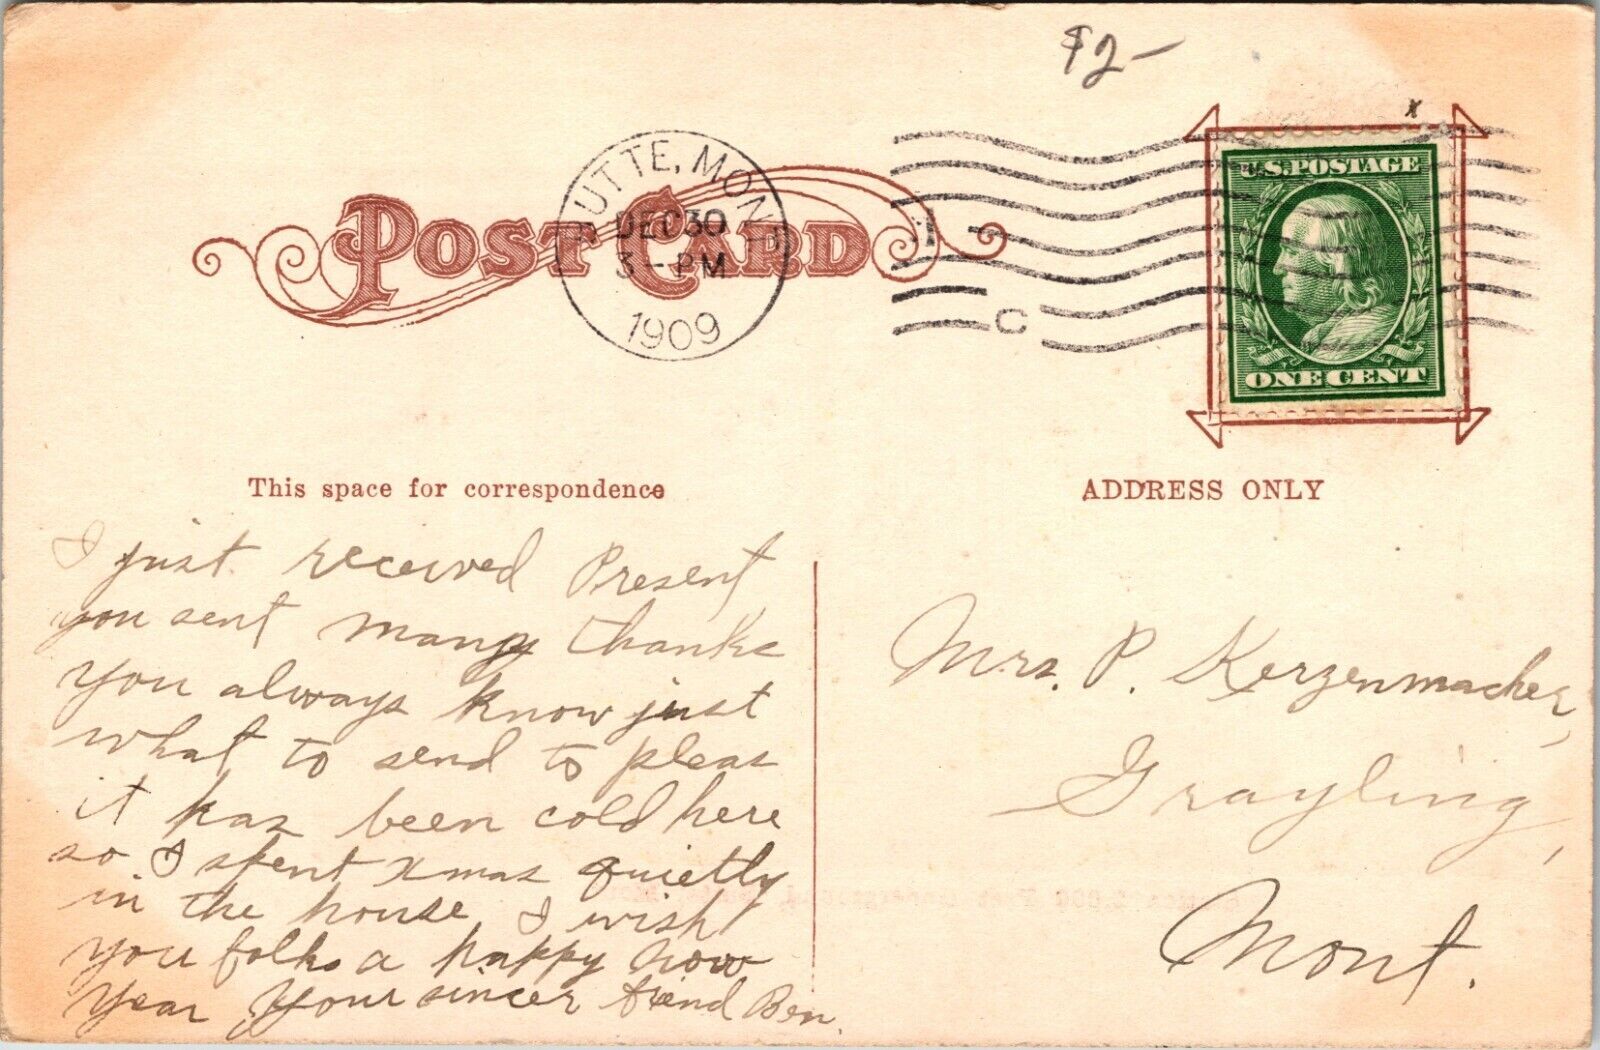 $2-
x
POST CARD
BUTTE, MONT
DEC 30
3-PM
1909
1
C
U.S. POSTAGE
ONE CENT
This space for correspondence
ADDRESS ONLY
I just received Present
you sent many thanks
you always know just
what to send to pleas
it has been cold here
so I spent xmas quietly
in the house I wish
you folks a happy now
year your sincer friend Ben.
Mrs. P. Kerzenmacher,
Grayling,
Mont.